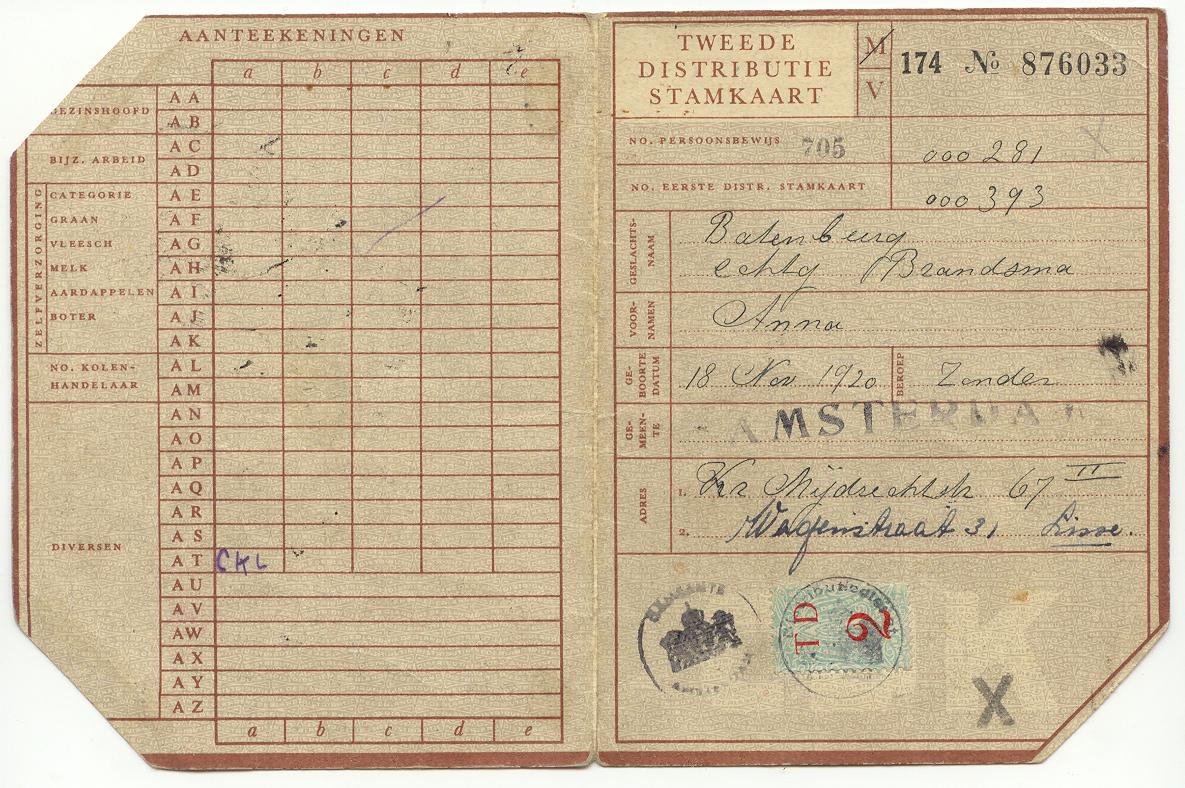 AANTEEKENINGEN
a b c d e
GEZINSHOOFD
AA
AB
BIJZ. ARBEID
AC
AD
ZELFVERZORGING
CATEGORIE AE
GRAAN AF
VLEESCH AG
MELK AH
AARDAPPELEN AI
BOTER AJ
AK
NO. KOLEN-
HANDELAAR
AL
AM
AN
AO
AP
AQ
AR
AS
DIVERSEN
AT CKL
AU
AV
AW
AX
AY
AZ
a b c d e
TWEEDE
DISTRIBUTIE
STAMKAART
M
V
174 No 876033
NO. PERSOONSBEWIJS 705 000281
NO. EERSTE DISTR. STAMKAART 000393
GESLACHTS-
NAAM
Batenburg
echtg Brandsma
VOOR-
NAMEN
Anna
GE-
BOORTE
DATUM
18 Nov 1920
BEROEP
Zonder
GE-
MEEN-
TE
AMSTERDAM
ADRES
1. Kr Mijdrechtstr 67 II
2. Wagenstraat 31 Lisse.
GEMEENTE
TD 2
K
X